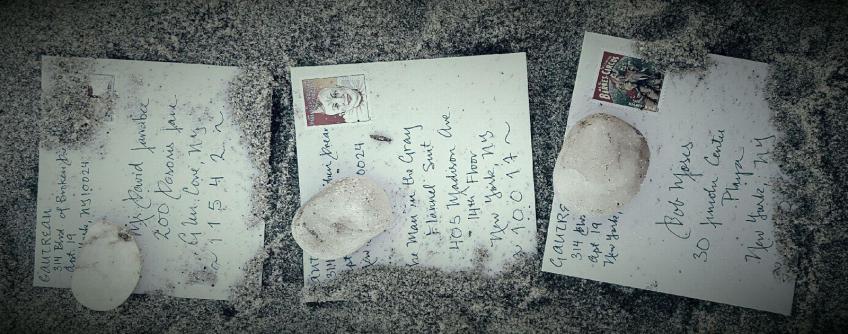 GAUTREAU
314 Blvd of Broken
Apt 19
NY 10024
Mr David
200 Parsons Lane
Glen Cove, NY
~ 11542 ~
0024
The Man in the Gray
Flannel Suit
405 Madison Ave
14th Floor
New York, NY
~ 10017 ~
GAUTRE
314 Blv
Apt 19
New York,
Bob Moses
30 Lincoln Center
Plaza
New York, NY